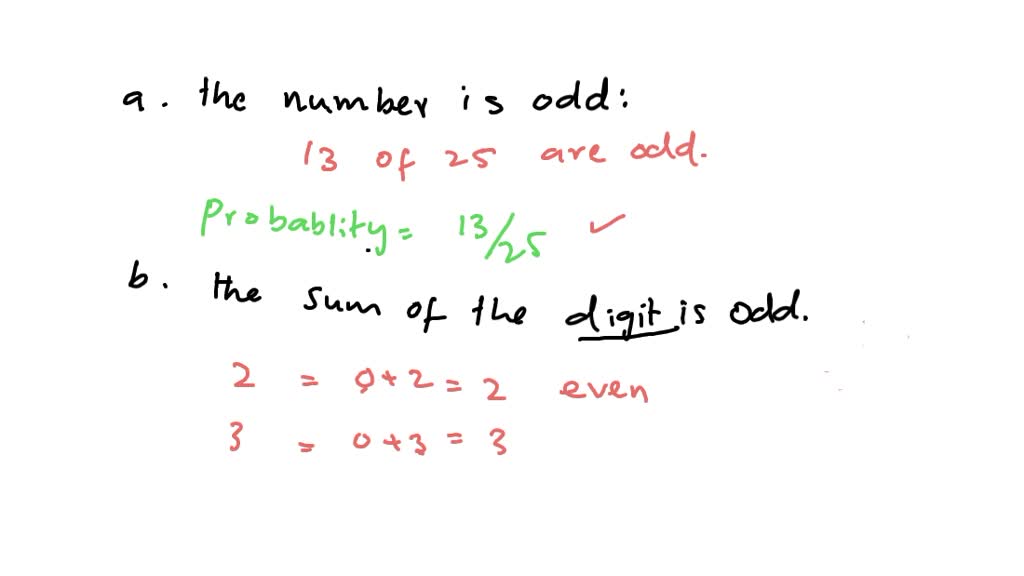 a. the number is odd:
13 of 25 are odd.
Probablity = 13/25 ✓
b. the sum of the digit is odd.
2 = 0+2 = 2 even
3 = 0+3 = 3